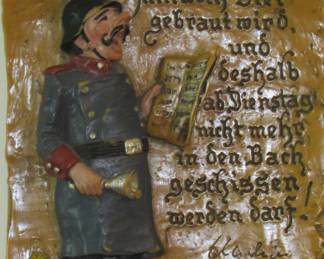 Bier
gebraut wird,
und
deshalb
ab Dienstag
nicht mehr
in den Bach
geschissen
werden darf!